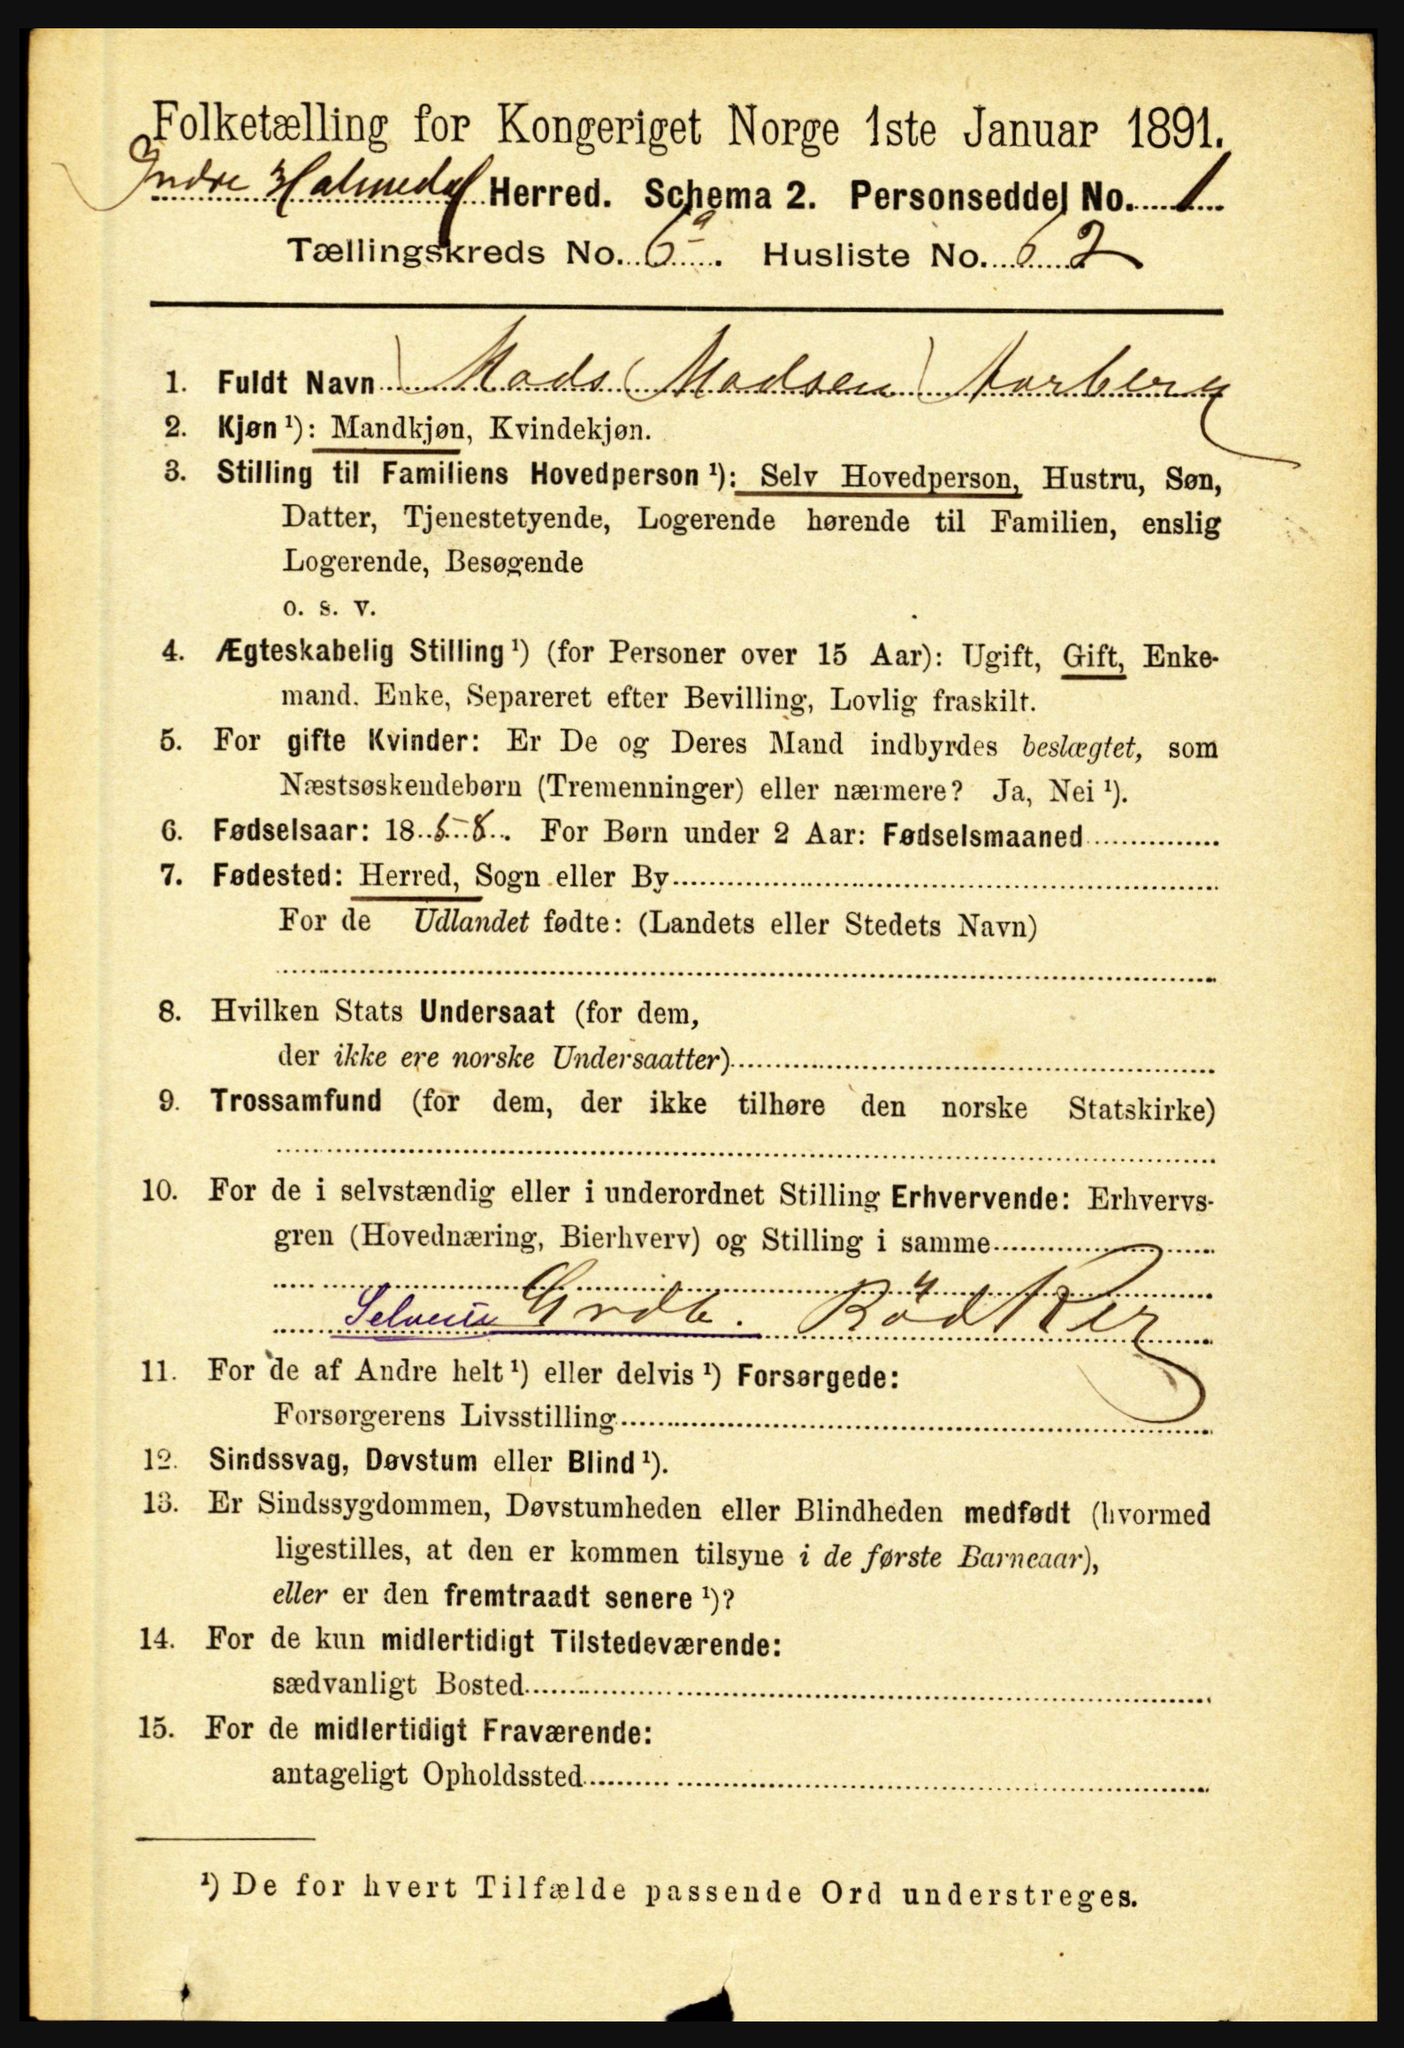 Folketælling for Kongeriget Norge 1ste Januar 1891.
Indre Holmedal Herred. Schema 2. Personseddel No. 1
Tællingskreds No. 6a. Husliste No. 62
1. Fuldt Navn Mads Madsen Aarberg
2. Kjøn¹): Mandkjøn, Kvindekjøn.
3. Stilling til Familiens Hovedperson¹): Selv Hovedperson, Hustru, Søn,
Datter, Tjenestetyende, Logerende hørende til Familien, enslig
Logerende, Besøgende
o. s. v.
4. Ægteskabelig Stilling¹) (for Personer over 15 Aar): Ugift, Gift, Enke-
mand. Enke, Separeret efter Bevilling, Lovlig fraskilt.
5. For gifte Kvinder: Er De og Deres Mand indbyrdes beslægtet, som
Næstsøskendebørn (Tremenninger) eller nærmere? Ja, Nei¹).
6. Fødselsaar: 1858. For Børn under 2 Aar: Fødselsmaaned
7. Fødested: Herred, Sogn eller By
For de Udlandet fødte: (Landets eller Stedets Navn)
8. Hvilken Stats Undersaat (for dem,
der ikke ere norske Undersaatter)
9. Trossamfund (for dem, der ikke tilhøre den norske Statskirke)
10. For de i selvstændig eller i underordnet Stilling Erhvervende: Erhvervs-
gren (Hovednæring, Bierhverv) og Stilling i samme
Selveier Grdb.
11. For de af Andre helt¹) eller delvis¹) Forsørgede:
Forsørgerens Livsstilling
12. Sindssvag, Døvstum eller Blind¹).
13. Er Sindssygdommen, Døvstumheden eller Blindheden medfødt (hvormed
ligestilles, at den er kommen tilsyne i de første Barneaar),
eller er den fremtraadt senere¹)?
14. For de kun midlertidigt Tilstedeværende:
sædvanligt Bosted
15. For de midlertidigt Fraværende:
antageligt Opholdssted
¹) De for hvert Tilfælde passende Ord understreges.